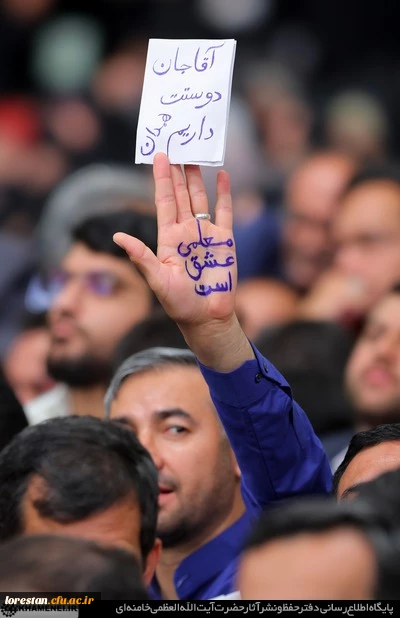 آقاجان
دوستت
داریم همه‌مان
معلمی
عشق
است
lorestan.cfu.ac.ir
KHAMENEI.IR
پایگاه اطلاع‌رسانی دفتر حفظ و نشر آثار حضرت آیت‌الله العظمی خامنه‌ای